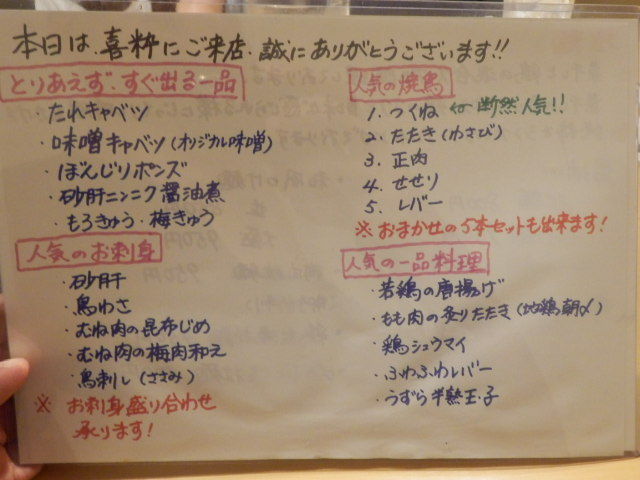 本日は、喜粋にご来店、誠にありがとうございます!!
とりあえず、すぐ出る一品
・たれキャベツ
・味噌キャベツ(オリジナル味噌)
・ぼんじりポンズ
・砂肝ニンニク醤油煮
・もろきゅう・梅きゅう
人気のお刺身
・砂肝
・鳥わさ
・むね肉の昆布じめ
・むね肉の梅肉和え
・鳥刺し(ささみ)
※ お刺身盛り合わせ
承ります!
人気の焼鳥
1. つくね ← 断然人気!!
2. たたき(わさび)
3. 正肉
4. せせり
5. レバー
※ おまかせの5本セットも出来ます!
人気の一品料理
・若鶏の唐揚げ
・もも肉の炙りたたき(地鶏朝〆)
・鶏シュウマイ
・ふわふわレバー
・うずら半熟玉子